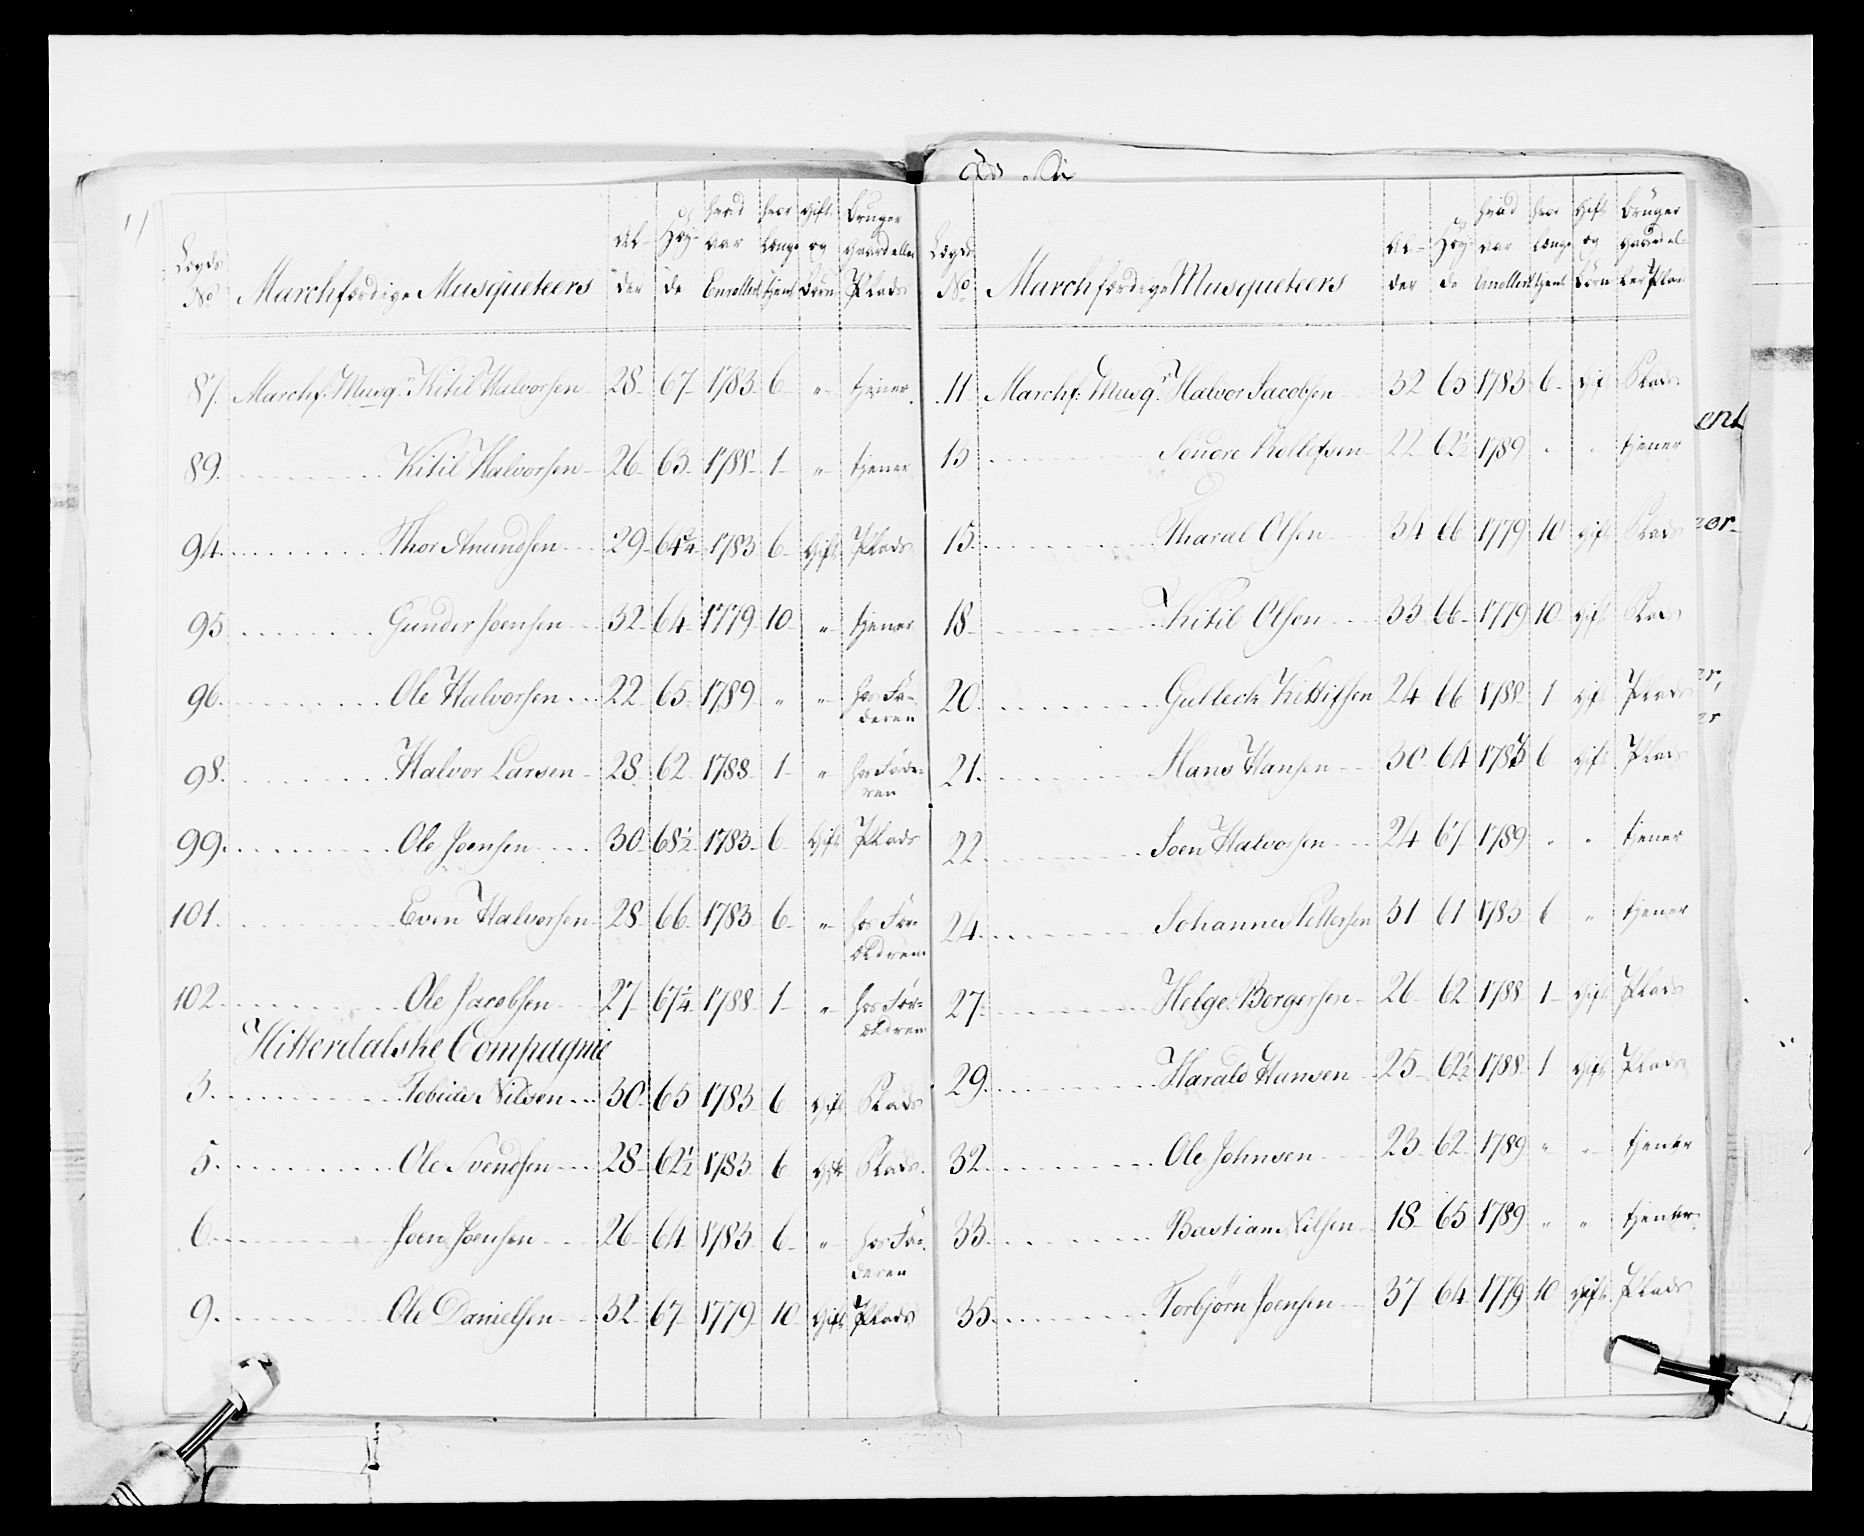 Lægds No Marchfærdige Musqueteers Al- der Høy- de hvad Aar Enrollert hvor længe tjent Gift og Børn Bruger Gaard eller Plads
87. Marchf: Musqr. Kitil Halvorsen 28 67 1783 6 " tjener
89. Kitil Halvorsen 26 63 1788 1 " tjener
94. Thor Amundsen 29 64¾ 1783 6 Gift Plads
95 Gunder Joensen 32 64 1779 10 " tjener
96. Ole Halvorsen 22 65 1789 " " hos Fa-
deren
98. Halvor Larsen 28 62 1788 1 " hos Fade-
ren
99. Ole Joensen 30 68½ 1783 6 Gift Plads
101. Even Halvorsen 28 66 1783 6 " hos For-
ældrene
102. Ole Jacobsen 27 67¼ 1788 1 " hos For-
ældrene
Hitterdalske Compagnie
3. Tobias Nilsen 30 65 1783 6 Gift Plads
5. Ole Svendsen 28 62½ 1783 6 Gift Plads
6. Joen Joensen 26 64 1783 6 " hos Fa-
deren
9. Ole Danielsen 32 67 1779 10 Gift Plads
Lægds No Marchfærdige Musqueteers Al- der Høy- de hvad Aar Enrollert hvor længe tjent Gift og Børn Bruger Gaard el- ler Plads
11 Marchf: Musqr. Halvor Jacobsen 32 65 1783 6 Gift Plads
13 Rollefsen 22 62½ 1789 " " tjener
15. Tharal Olsen 34 66 1779 10 Gift Plads
18 Kitil Olsen 33 66 1779 10 Gift Plads
20. Gulleck Kittilsen 24 66 1788 1 Gift Plads
21. Hans Hansen 30 64 1783 6 Gift Plads
22 Joen Halvorsen 24 67 1789 " " tjener
24. Johannes Pettersen 31 61 1783 6 " tjener
27. Helge Borgersen 26 62 1788 1 Gift Plads
29. Harald Hansen 25 62½ 1788 1 Gift Plads
32. Ole Johnsen 23 62 1789 " " tjener
33. Bastian Nilsen 18 65 1789 " " tjener
35. Torbjörn Joensen 37 64 1779 10 Gift Plads